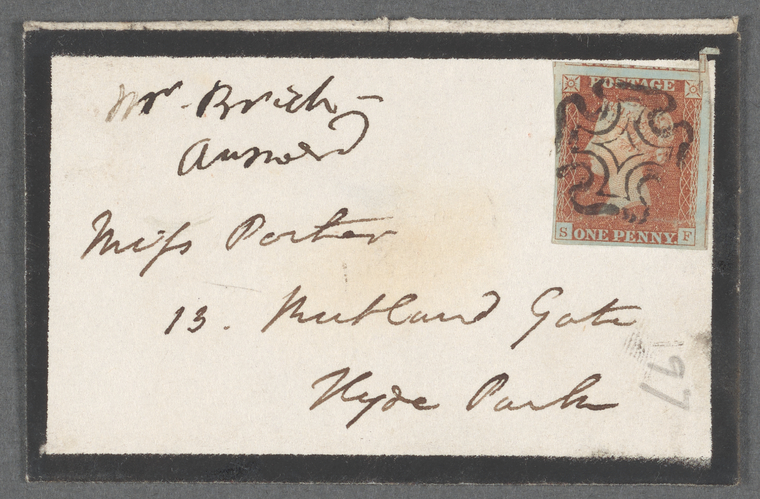 Mr. Brich -
Answerd
Miss Porter
13. Rutland Gate
Hyde Park
POSTAGE
S ONE PENNY F
97